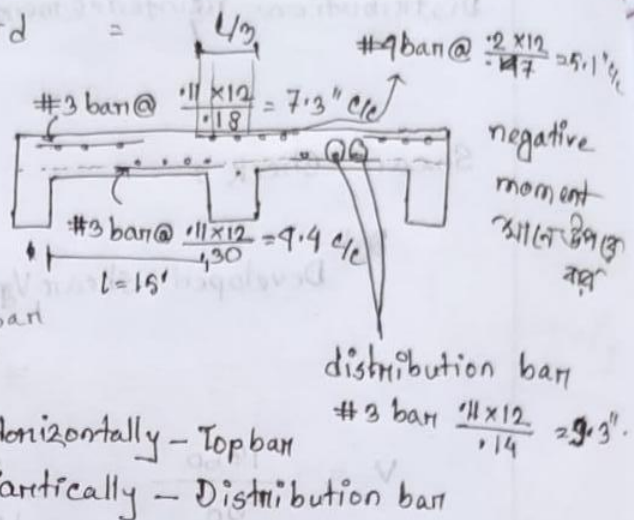 d = L/3
#4 bar @ .2 ×12 / .47 = 5.1" c/c
#3 bar @ .11 ×12 / .18 = 7.3" c/c
negative
moment
মানে উপরে
#3 bar @ .11 ×12 / .30 = 4.4 c/c
l = 15'
distribution bar
#3 bar .11 ×12 / .14 = 9.3"
Horizontally – Top bar
artically – Distribution bar